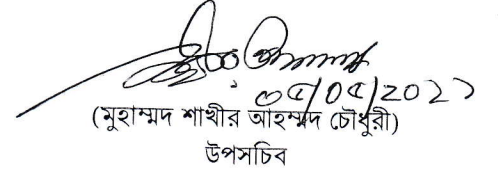 ০৫/০৫/202১
(মুহাম্মদ শাখীর আহম্মদ চৌধুরী)
উপসচিব